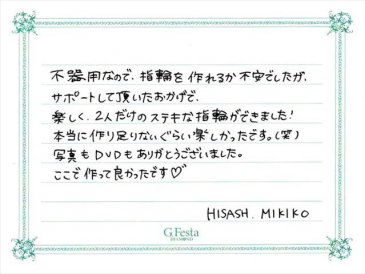 不器用なので、指輪を作れるか不安でしたが、
サポートして頂いたおかげで、
楽しく、2人だけのステキな指輪ができました!
本当に作り足りないぐらい楽しかったです。(笑)
写真もDVDもありがとうございました。
ここで作って良かったです♡
HISASHI. MIKIKO
G.Festa
DIAMOND